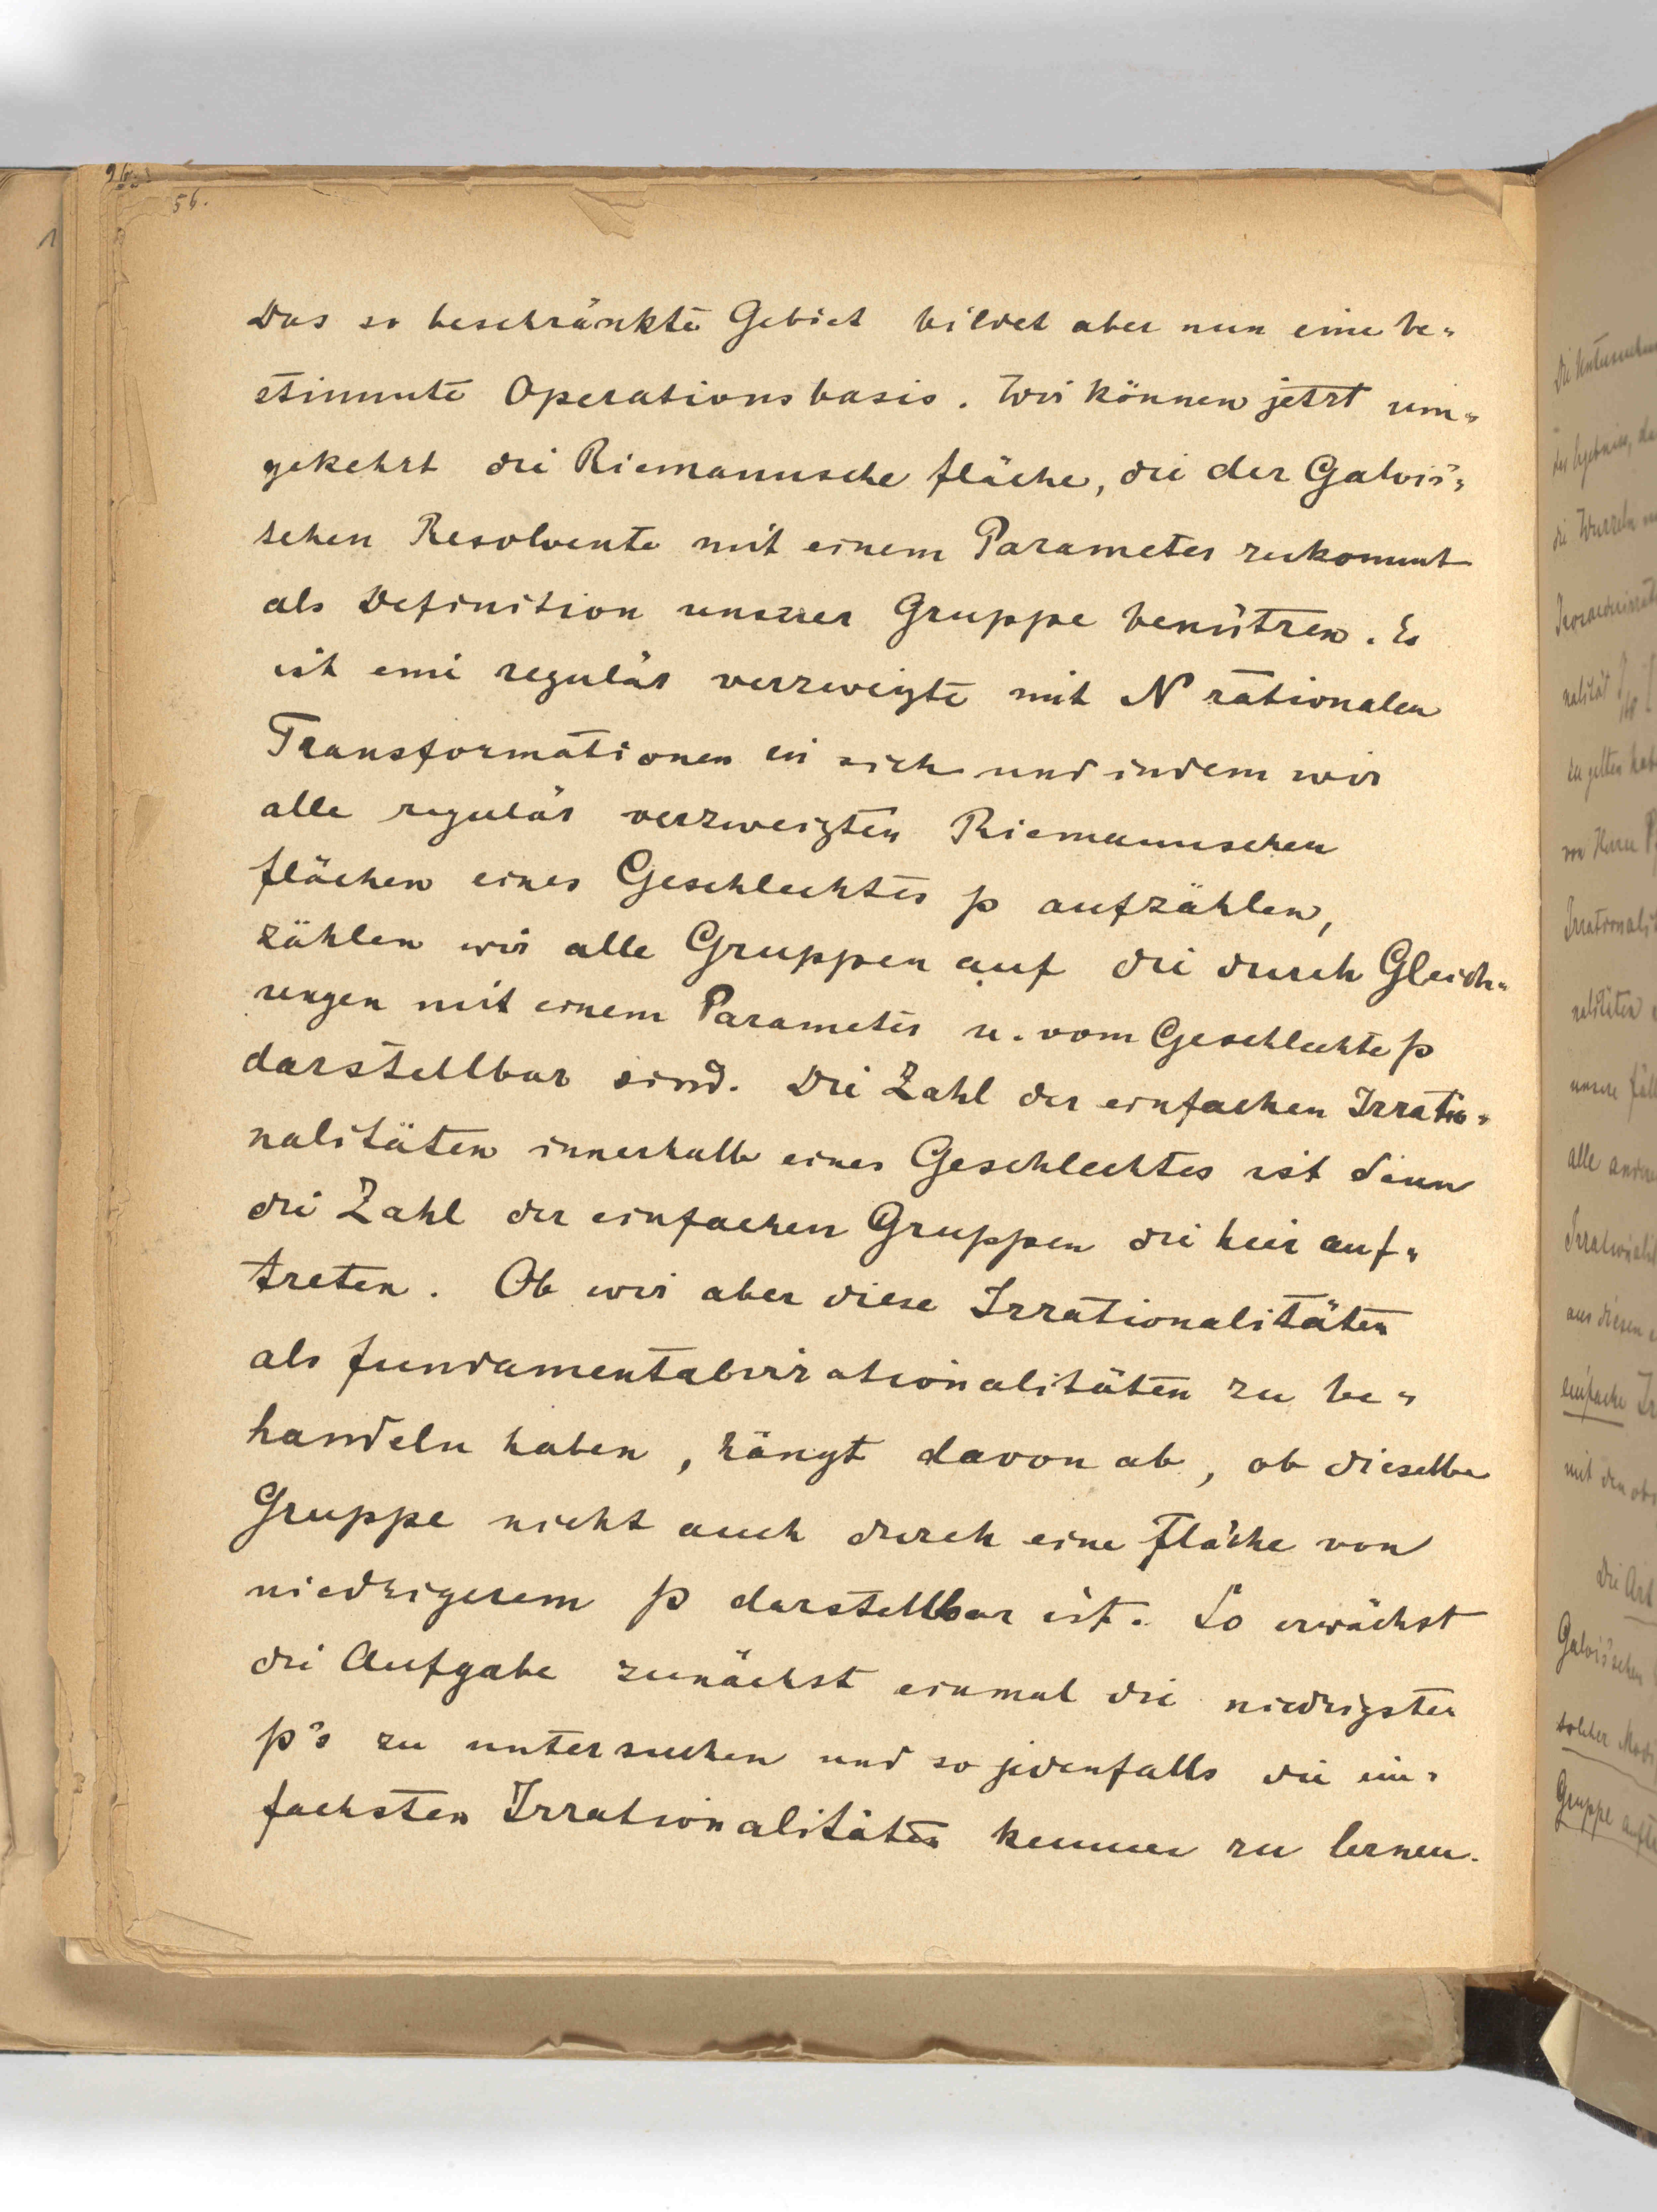 56.
Das so beschränkte Gebiet bildet aber nun eine be=
stimmte Operationsbasis. Wir können jetzt um=
gekehrt die Riemannsche Fläche, die der Galois'=
schen Resolvente mit einem Parameter zukommt
als Definition unserer Gruppe benützen. Es
ist eine regulär verzweigte mit N rationalen
Transformationen in sich und indem wir
alle regulär verzweigten Riemannschen
Flächen eines Geschlechtes p aufzählen,
zählen wir alle Gruppen auf die durch Gleich=
ungen mit einem Parameter u. vom Geschlechte p
darstellbar sind. Die Zahl der einfachen Irratio=
nalitäten innerhalb eines Geschlechtes ist dann
die Zahl der einfachen Gruppen die hier auf=
treten. Ob wir aber diese Irrationalitäten
als Fundamentalirrationalitäten zu be=
handeln haben, hängt davon ab, ob dieselbe
Gruppe nicht auch durch eine Fläche von
niedrigerem p darstellbar ist. So erwächst
die Aufgabe zunächst einmal die niedrigsten
p's zu untersuchen und so jedenfalls die ein=
fachsten Irrationalitäten kennen zu lernen.
die Wurzeln
zu gelten
von Herrn
alle
einfache
mit den
Die Art
Galois'schen
solcher
Gruppe